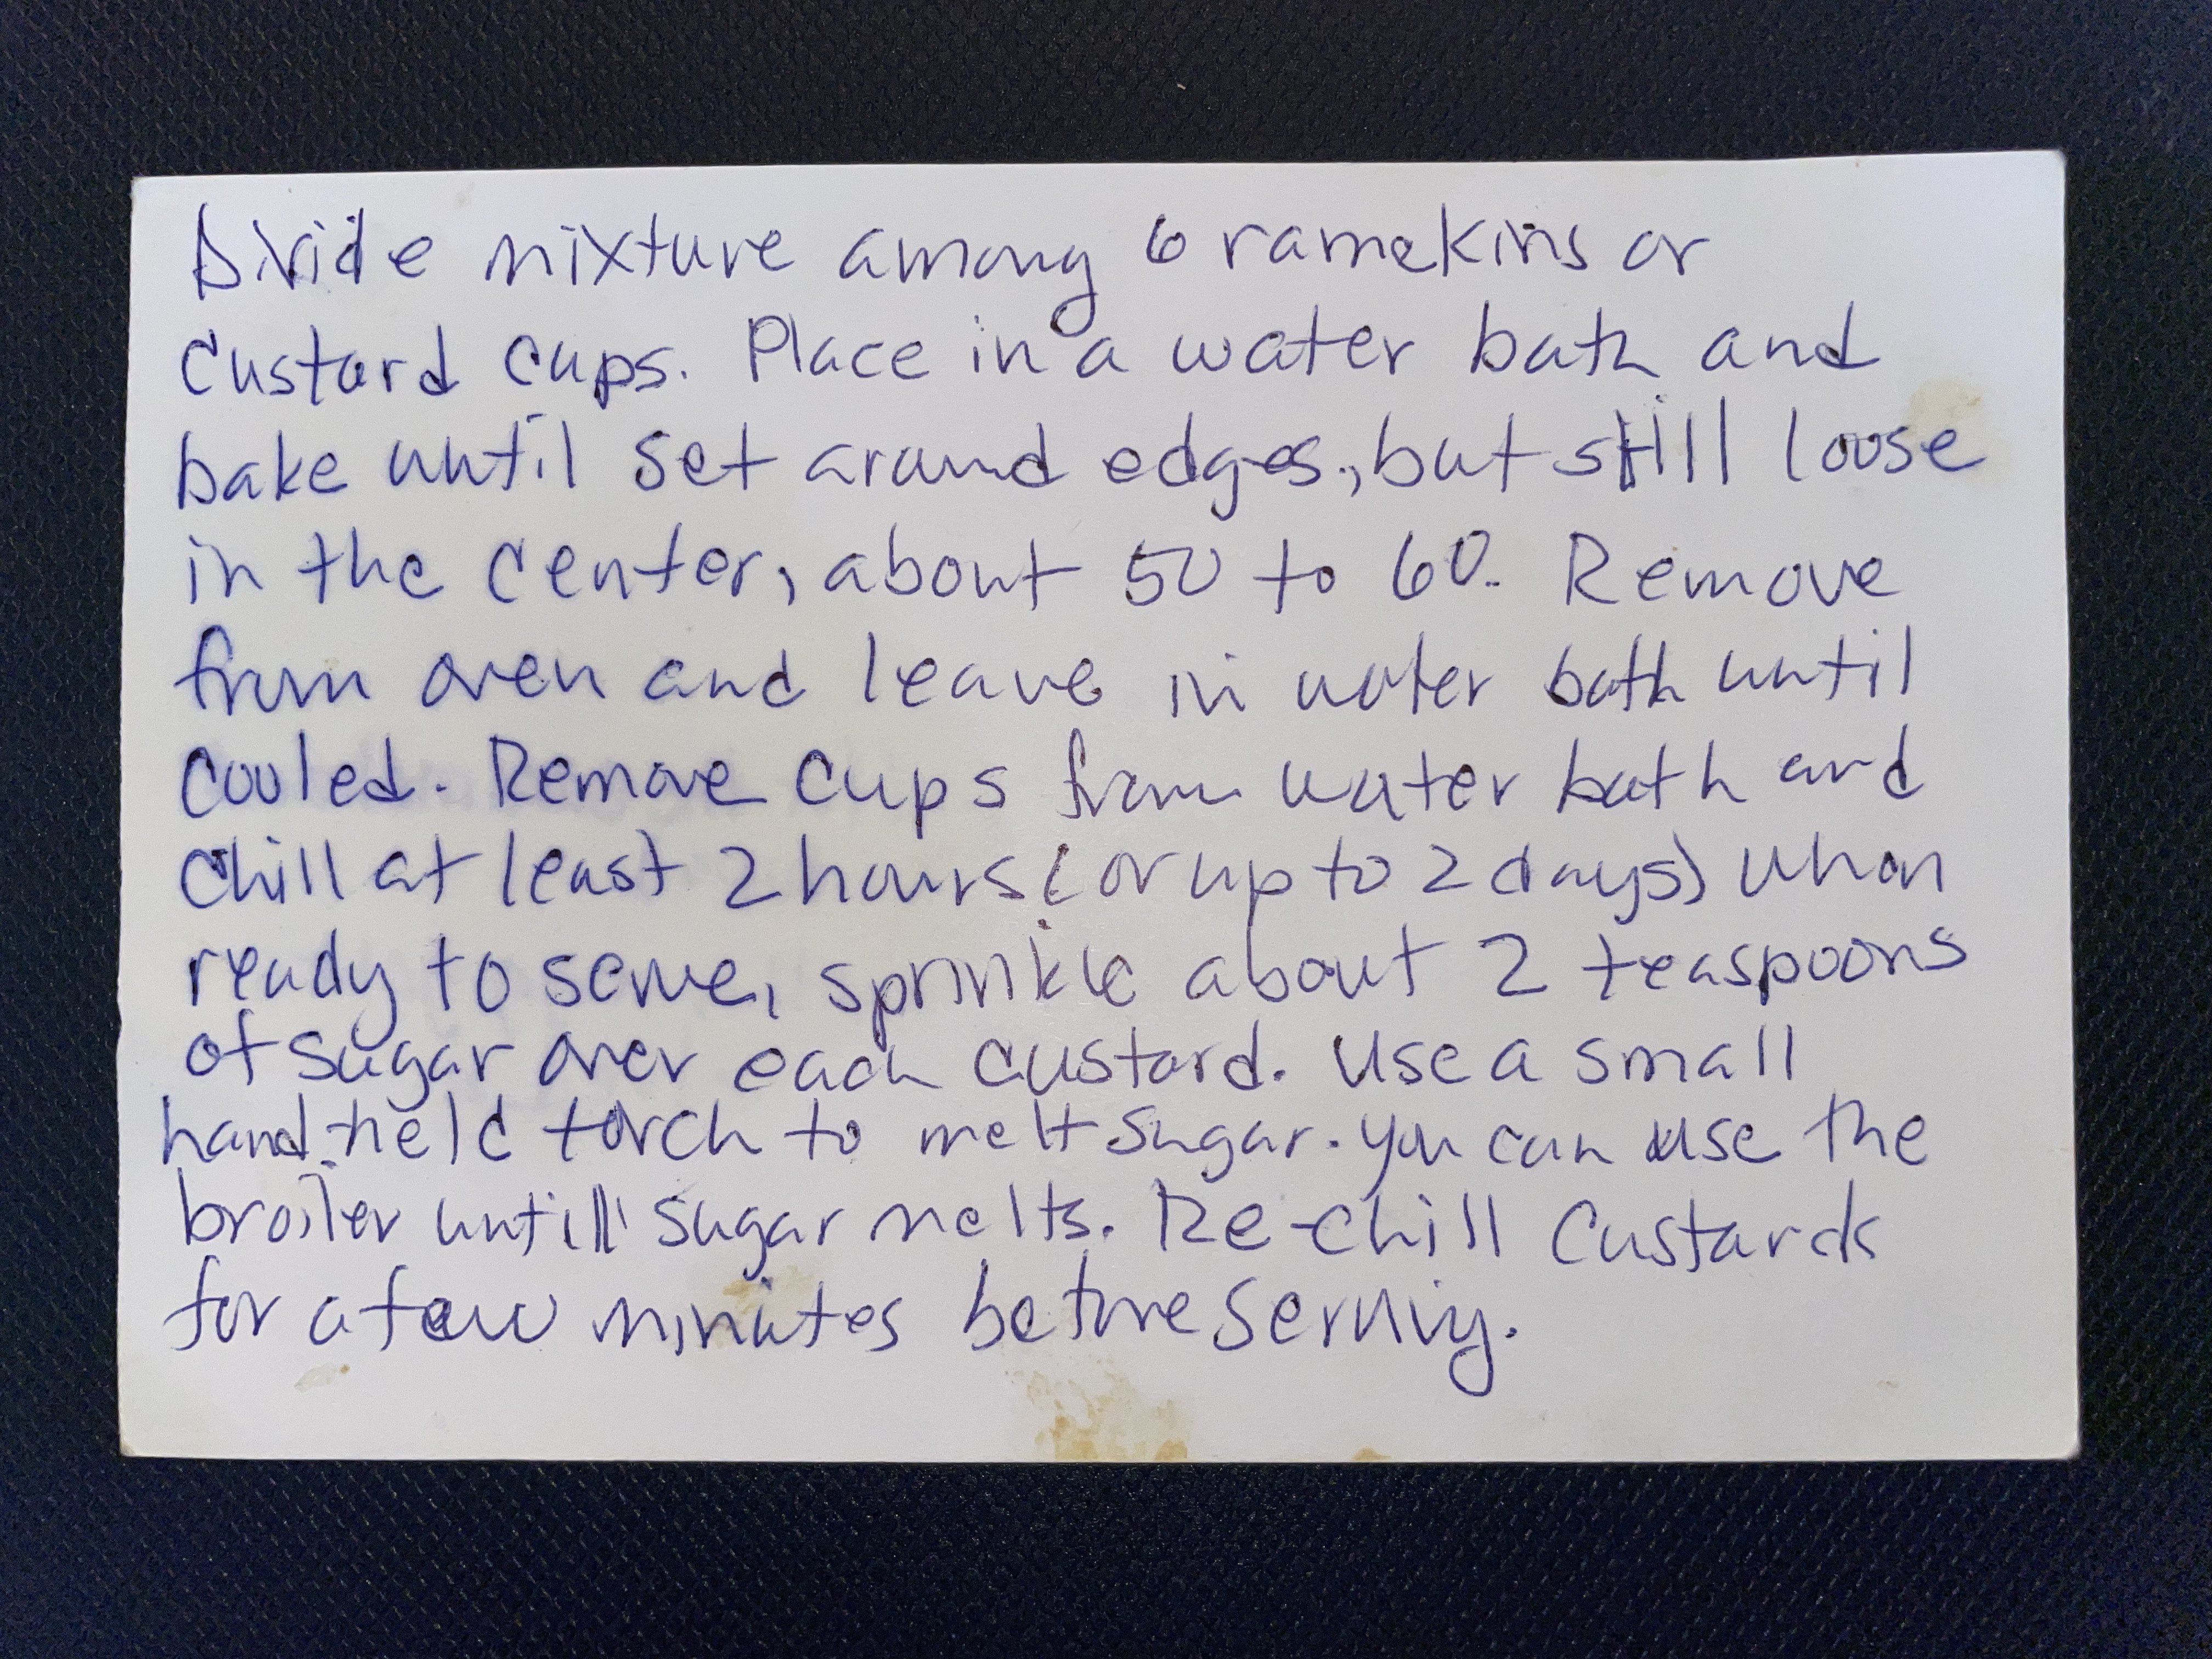 Divide mixture among 6 ramekins or
custard cups. Place in a water bath and
bake until set around edges, but still loose
in the center, about 50 to 60. Remove
from oven and leave in water bath until
cooled. Remove cups from water bath and
chill at least 2 hours (or up to 2 days) when
ready to serve, sprinkle about 2 teaspoons
of sugar over each custard. Use a small
hand-held torch to melt sugar. You can use the
broiler untill sugar melts. Re-chill custards
for a few minutes before serving.